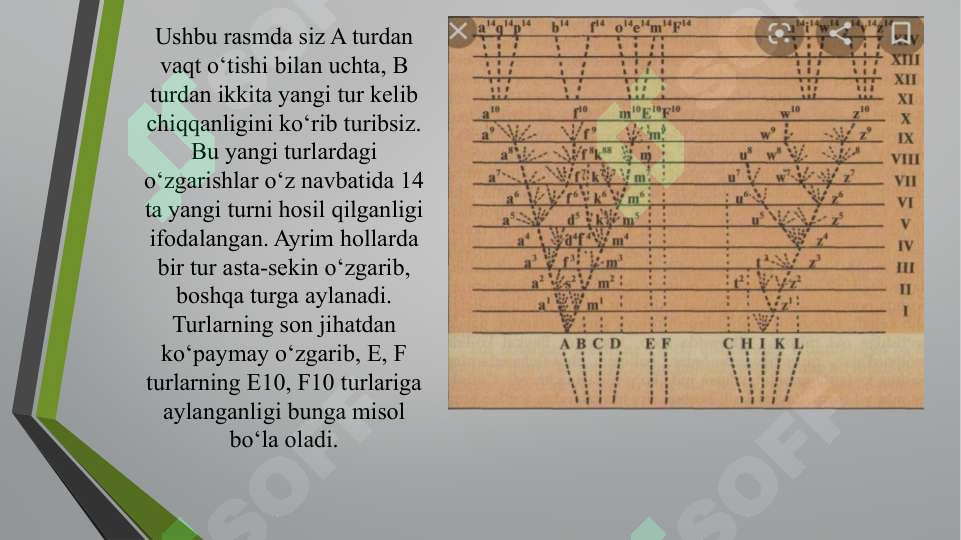 Ushbu rasmda siz A turdan
vaqt o‘tishi bilan uchta, B
turdan ikkita yangi tur kelib
chiqqanligini ko‘rib turibsiz.
Bu yangi turlardagi
o‘zgarishlar o‘z navbatida 14
ta yangi turni hosil qilganligi
ifodalangan. Ayrim hollarda
bir tur asta-sekin o‘zgarib,
boshqa turga aylanadi.
Turlarning son jihatdan
ko‘paymay o‘zgarib, E, F
turlarning E10, F10 turlariga
aylanganligi bunga misol
bo‘la oladi.
a¹⁴ q¹⁴ p¹⁴ b¹⁴ f¹⁴ o¹⁴ e¹⁴ m¹⁴ F¹⁴
XIII
XII
XI
a¹⁰ f¹⁰ m¹⁰ E¹⁰ F¹⁰ w¹⁰ z¹⁰ X
a⁹ f⁹ w⁹ z⁹ IX
a⁸ f⁸ u⁸ w⁸ VIII
a⁷ u⁷ w⁷ z⁷ VII
a⁶ f⁶ k⁶ m⁶ u⁶ z⁶ VI
a⁵ d⁵ m⁵ u⁵ z⁵ V
a⁴ d⁴ f⁴ m⁴ z⁴ IV
a³ f³ m³ z³ III
a² s² m² t² z² II
a¹ m¹ z¹ I
A B C D E F C H I K L
SOFF
SOFF